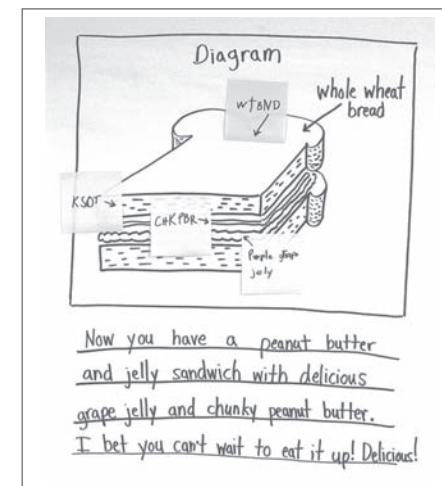 Diagram
wtBND
whole wheat
bread
KSOT
CHKPBR
Purple grape
jelly
Now you have a peanut butter
and jelly sandwich with delicious
grape jelly and chunky peanut butter.
I bet you can't wait to eat it up! Delicious!